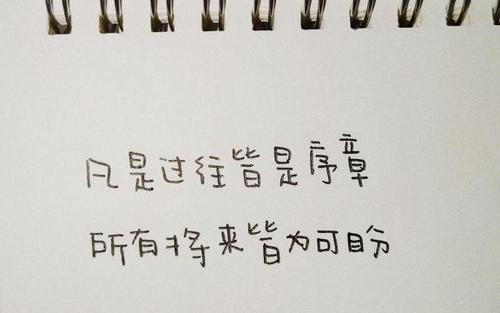 凡是过往皆是序章
所有将来皆为可盼